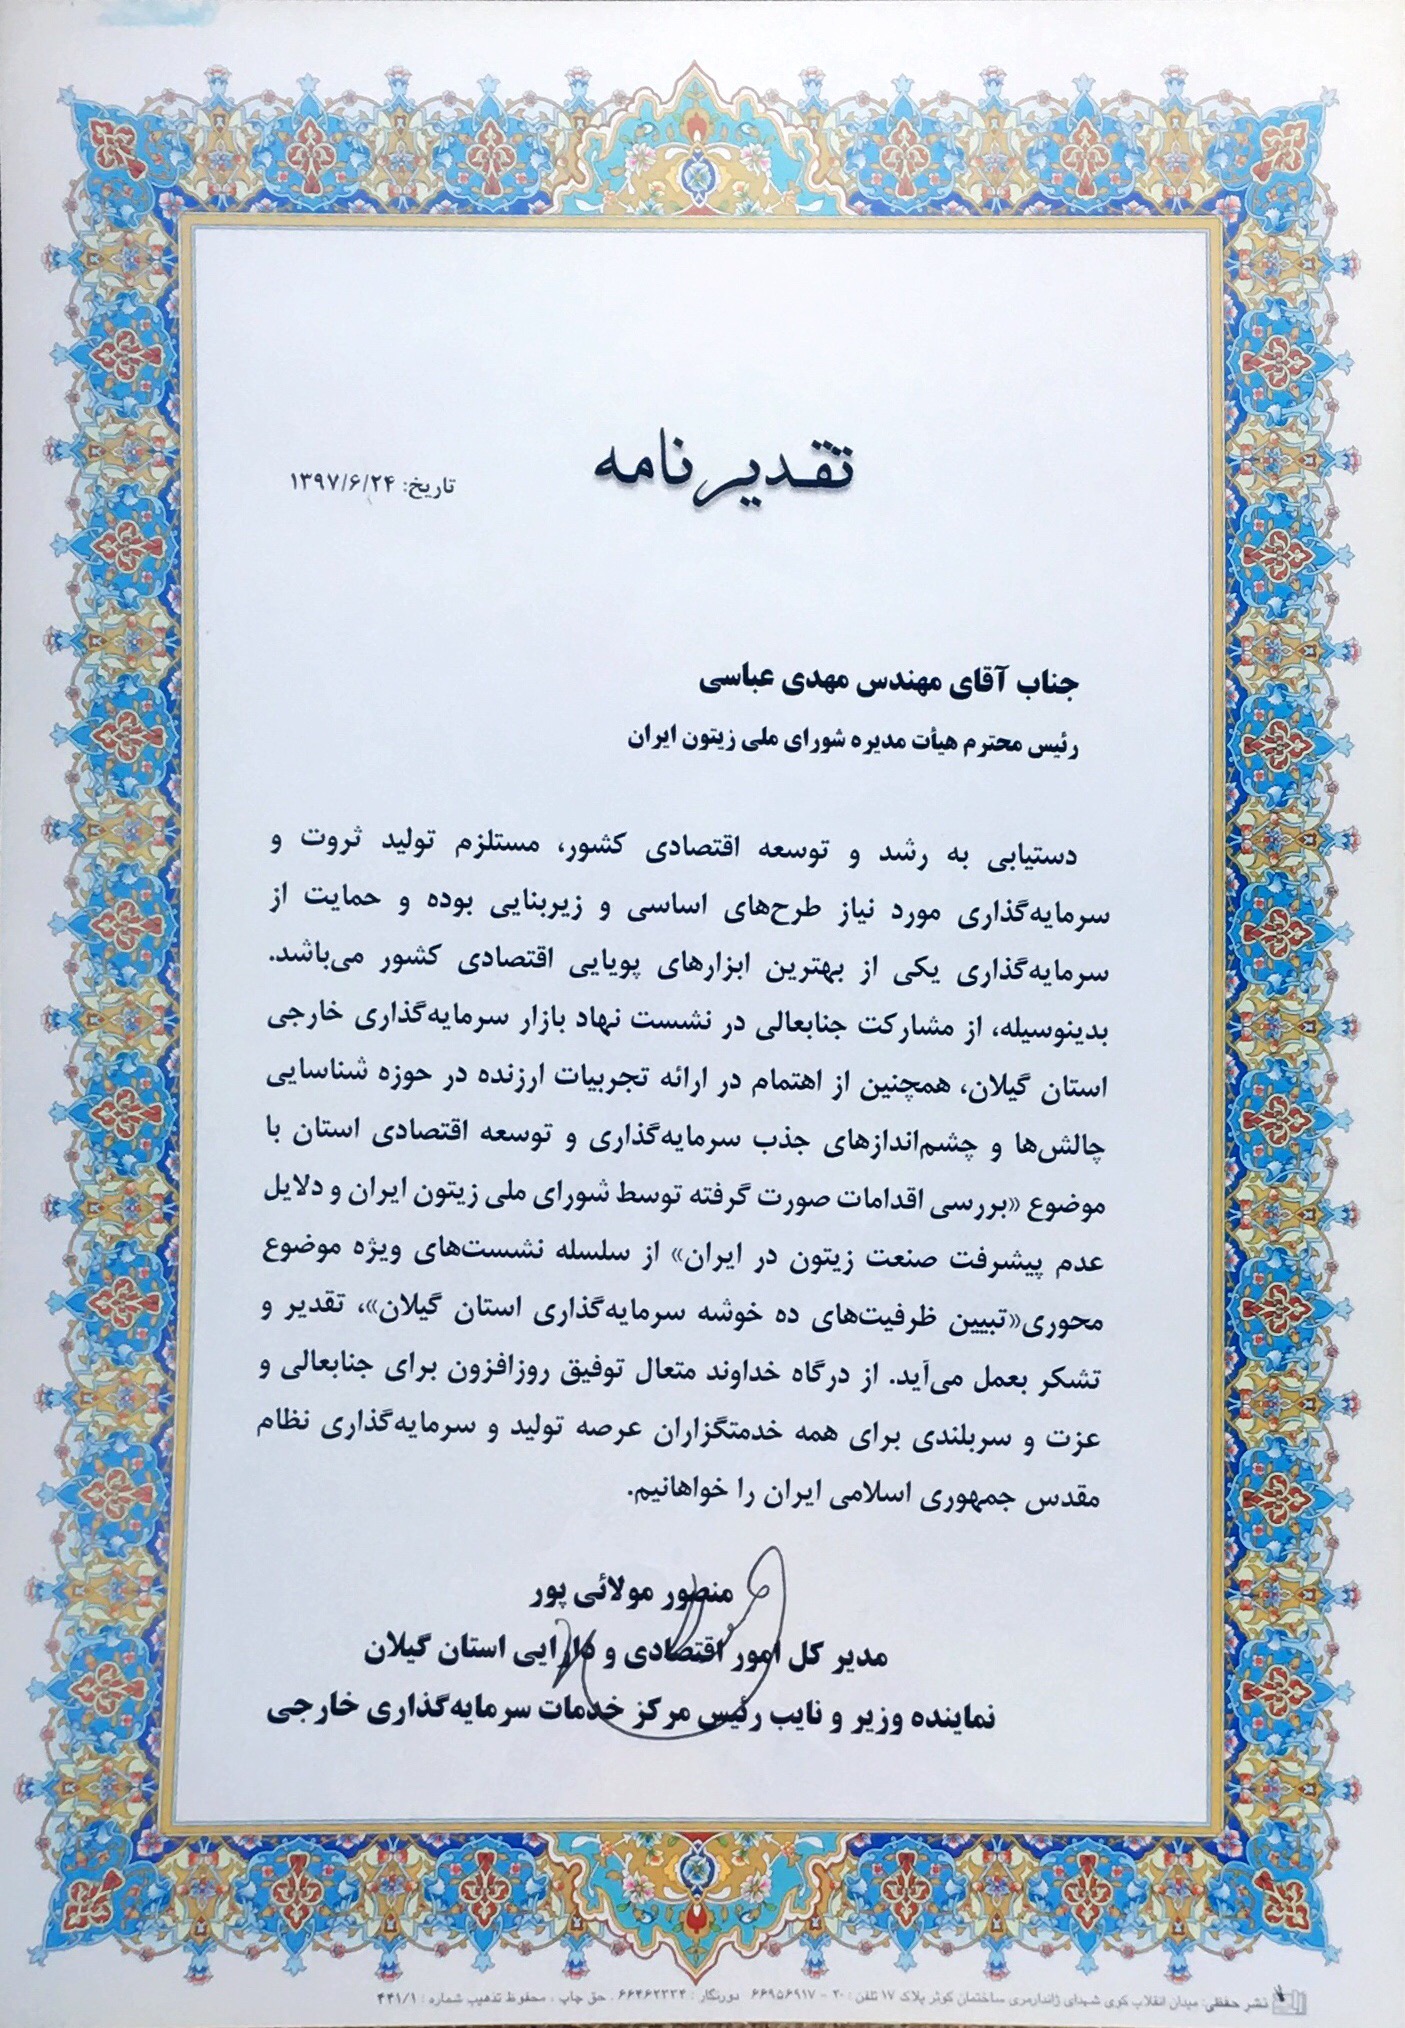 تقدیرنامه
تاریخ: ۱۳۹۷/۶/۲۴
جناب آقای مهندس مهدی عباسی
رئیس محترم هیأت مدیره شورای ملی زیتون ایران
دستیابی به رشد و توسعه اقتصادی کشور، مستلزم تولید ثروت و
سرمایه‌گذاری مورد نیاز طرح‌های اساسی و زیربنایی بوده و حمایت از
سرمایه‌گذاری یکی از بهترین ابزارهای پویایی اقتصادی کشور می‌باشد.
بدینوسیله، از مشارکت جنابعالی در نشست نهاد بازار سرمایه‌گذاری خارجی
استان گیلان، همچنین از اهتمام در ارائه تجربیات ارزنده در حوزه شناسایی
چالش‌ها و چشم‌اندازهای جذب سرمایه‌گذاری و توسعه اقتصادی استان با
موضوع «بررسی اقدامات صورت گرفته توسط شورای ملی زیتون ایران و دلایل
عدم پیشرفت صنعت زیتون در ایران» از سلسله نشست‌های ویژه موضوع
محوری«تبیین ظرفیت‌های ده خوشه سرمایه‌گذاری استان گیلان»، تقدیر و
تشکر بعمل می‌آید. از درگاه خداوند متعال توفیق روزافزون برای جنابعالی و
عزت و سربلندی برای همه خدمتگزاران عرصه تولید و سرمایه‌گذاری نظام
مقدس جمهوری اسلامی ایران را خواهانیم.
منصور مولائی پور
مدیر کل امور اقتصادی و دارایی استان گیلان
نماینده وزیر و نایب رئیس مرکز خدمات سرمایه‌گذاری خارجی
نشر حفظی: میدان انقلاب کوی شهدای ژاندارمری ساختمان کوثر پلاک ۱۷ تلفن: ۲۰ - ۶۶۹۵۶۹۱۷ دورنگار: ۶۶۴۶۲۳۳۴ . حق چاپ ، محفوظ تذهیب شماره : ۴۴۱/۱